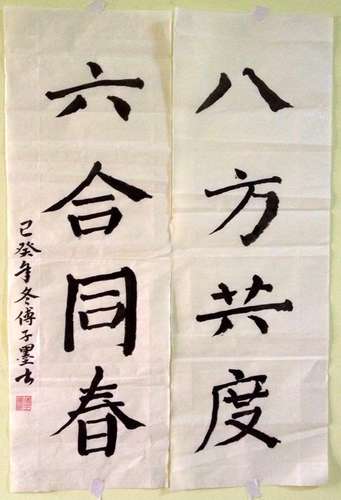 八方共度
六合同春
已癸年冬傅子墨书